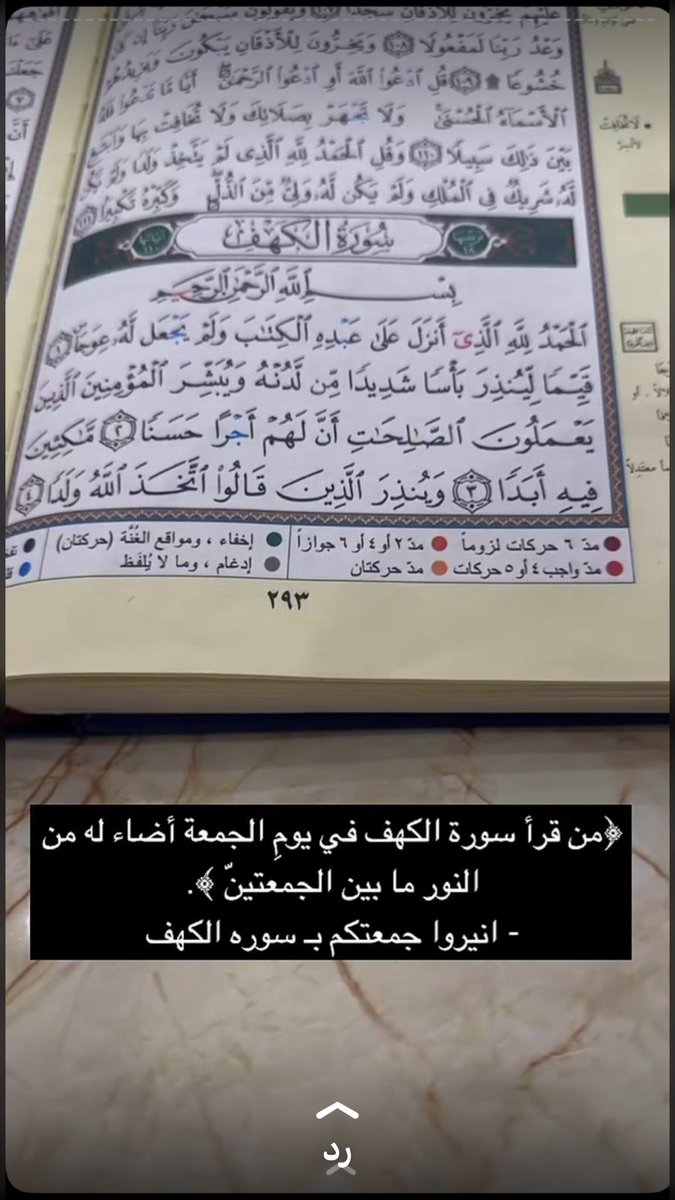 عليهم يخرون للأذقان سجدا ١٠٧ ويقولون سبحن ربنا إن كان
وعد ربنا لمفعولا ١٠٨ ويخرون للأذقان يبكون ويزيدهم
خشوعا ۩ ١٠٩ قل ٱدعوا ٱلله أو ٱدعوا ٱلرحمن أيا ما تدعوا فله
ٱلأسماء ٱلحسنى ولا تجهر بصلاتك ولا تخافت بها وٱبتغ
بين ذلك سبيلا ١١٠ وقل ٱلحمد لله ٱلذى لم يتخذ ولدا ولم يكن
له شريك في ٱلملك ولم يكن له ولي من ٱلذل وكبره تكبيرا ١١١
سورة الكهف
بسم ٱلله ٱلرحمن ٱلرحيم
ٱلحمد لله ٱلذى أنزل على عبده ٱلكتب ولم يجعل له عوجا ١
قيما لينذر بأسا شديدا من لدنه ويبشر ٱلمؤمنين ٱلذين
يعملون ٱلصلحت أن لهم أجرا حسنا ٢ مكثين
فيه أبدا ٣ وينذر ٱلذين قالوا ٱتخذ ٱلله ولدا ٤
مدّ ٦ حركات لزوماً مدّ ٢ أو ٤ أو ٦ جوازاً إخفاء ، ومواقع الغُنَّة (حركتان)
مدّ واجب ٤ أو ٥ حركات مدّ حركتان إدغام ، وما لا يُلفَظ
٢٩٣
﴿من قرأ سورة الكهف في يومِ الجمعة أضاء له من
النور ما بين الجمعتينّ ﴾.
- انيروا جمعتكم بـ سوره الكهف
رد